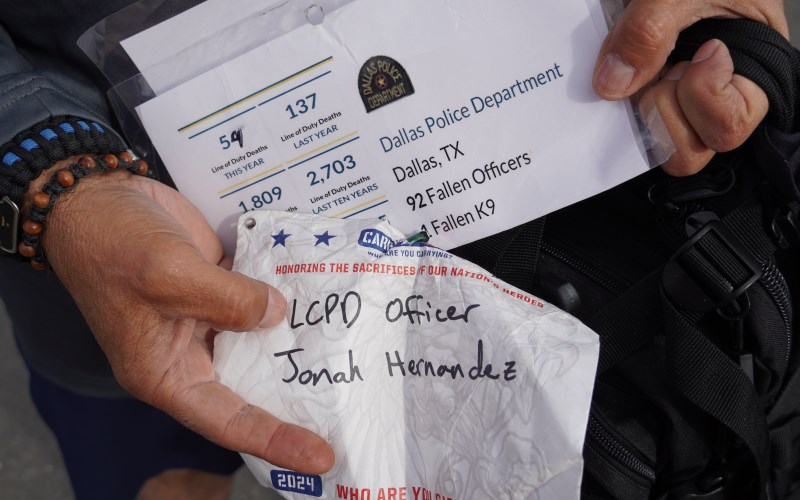 DALLAS POLICE
DEPARTMENT
54
Line of Duty Deaths
THIS YEAR
137
Line of Duty Deaths
LAST YEAR
1,809
2,703
Line of Duty Deaths
LAST TEN YEARS
Dallas Police Department
Dallas, TX
92 Fallen Officers
1 Fallen K9
WHO ARE YOU CARRYING?
HONORING THE SACRIFICES OF OUR NATION'S HEROES
LCPD Officer
Jonah Hernandez
2024
WHO ARE YOU